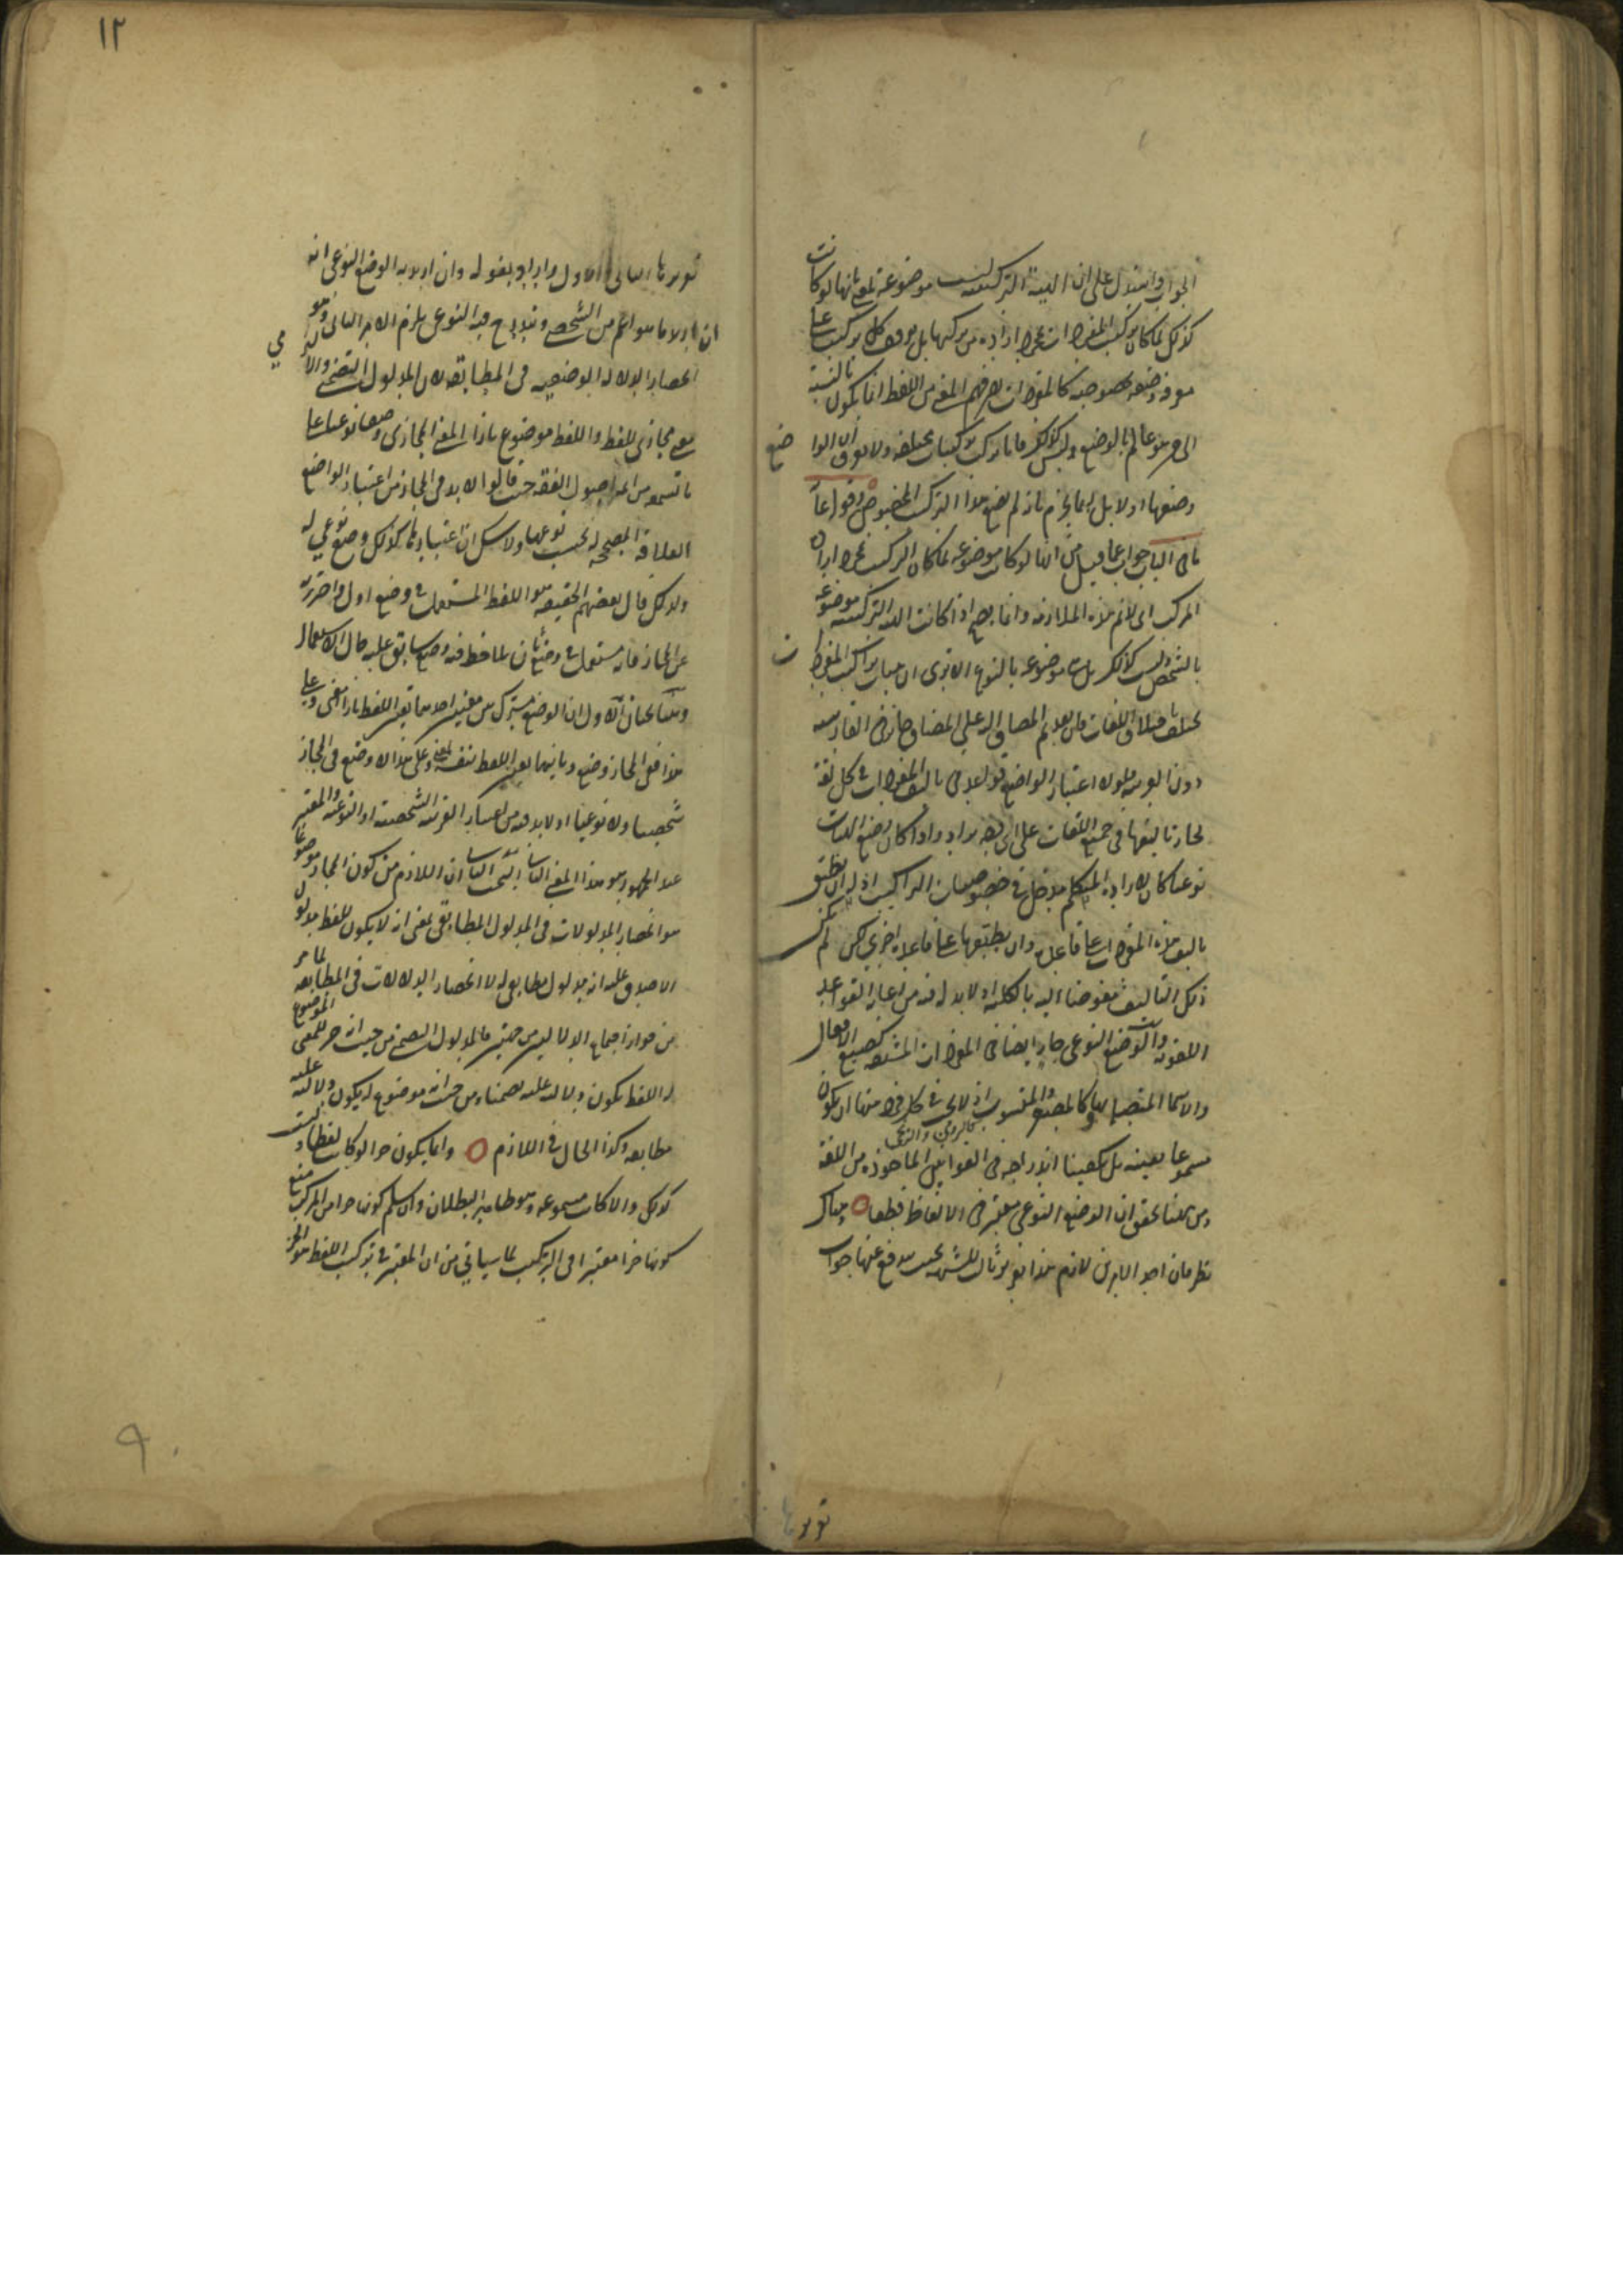 الجواب واستدل على ان الهيئة التركيبية ليست موضوعة لمعنى بانها لو كانت
كذلك لما كان تركيب المفردات بمجرد ارادة من يركبها بل يتوقف كل تركيب على
معرفة وضعه بخصوصه كالمفردات لان فهم المعنى من اللفظ انما يكون بالنسبة
الى من هو عالم بالوضع وليس كذلك فانا نركب تركيبات مختلفة ولا نعرف ان الواضع
وضعها او لا بل ربما نجزم بانه لم يضع هذا التركيب المخصوص قوله
جواب عما قيل من انها لو كانت موضوعة لما كان التركيب بمجرد ارادة
المركب اى لا نم هذه الملازمة وانما يصح اذا كانت الهيئة التركيبية موضوعة
بالشخص وليست كذلك بل هى موضوعة بالنوع الا ترى ان هيئات تراكيب المفردات
تختلف باختلاف اللغات فان تقديم المضاف اليه على المضاف جائز فى الفارسية
دون العربية فلولا اعتبار الواضع قواعد فى تاليف المفردات فى كل لغة
لجاز تاليفها فى جميع اللغات على اى وجه يراد واذا كان وضع الهيئات
نوعيا كان لارادة المتكلم مدخل فى خصوصيات التراكيب اذ له ان يطبق
تاليف هذه المفردات على قاعدة وان يطبقها على قاعدة اخرى لكن لم يكن
ذلك التاليف مفوضا اليه بالكلية اذ لا بد له فيه من اعتبار القواعد
اللغوية والوضع النوعى جار ايضا فى المفردات المشتقة كصيغ الافعال
والاسماء المتصلة بها وكالمصغر والمنسوب اذ لا يجب فى كل فرد منها ان يكون
مسموعا بعينه بل يكفينا اندراجه فى القوانين الماخوذة من اللغة
ومن ههنا تحقق ان الوضع النوعى معتبر فى الالفاظ قطعا وهناك
نظر فان احد الامرين لازم هذا تقرير ثالث للشبهة بحيث يندفع عنها جواب
تقريرها
١٢
تقريرها الثانى الاول وايراد بقوله وان اريد به الوضع النوعى انه
ان اريد ما هو اعم من الشخصى ويندرج فيه النوعى يلزم الامر الثانى وهو
انحصار الدلالة الوضعية فى المطابقة لان المدلول التضمنى والالتزامى
معنى مجازى للفظ واللفظ موضوع بازاء المعنى المجازى وضعا نوعيا على
ما تسمعه من ائمة اصول الفقه حيث قالوا لا بد فى المجاز من اعتبار الواضع
العلاقة المصححة له بحسب نوعها ولا شك ان اعتبارها كذلك وضع نوعى له
ولذلك قال بعضهم الحقيقة هو اللفظ المستعمل فى وضع اول واحترز به
عن المجاز فانه مستعمل فى وضع ثان لملاحظة وضع سابق عليه حال الاستعمال
وههنا بحثان الاول ان الوضع مشترك بين معنيين احدهما تعيين اللفظ بازاء معنى وعلى
هذا ففى المجاز وضع وثانيهما تعيين اللفظ بنفسه لمعنى وعلى هذا لا وضع فى المجاز
شخصيا ولا نوعيا اذ لا بد فيه من اعتبار القرينة الشخصية او النوعية والمعتبر
عند الجمهور هو هذا المعنى الثانى البحث الثانى ان اللازم من كون المجاز موضوعا
هو انحصار المدلولات فى المدلول المطابقى بمعنى انه لا يكون للفظ مدلول
الا صدق عليه انه مدلول مطابقى له لا انحصار الدلالات فى المطابقة لما مر
من جواز اجتماع الدلالتين من جهتين فالمدلول التضمنى من حيث انه جزء للمعنى الموضوع
له اللفظ يكون دلالته عليه تضمنا ومن حيث انه موضوع له يكون دلالته عليه
مطابقة وكذا الحال فى اللازم وانما يكون جزءا لو كانت لفظا وليست
كذلك والا لكانت مسموعة وهو ظاهر البطلان وان سلم كونها جزءا من المركب منع
كونها جزءا معتبرا فى التركيب لما سياتى من ان المعتبر فى تركيب اللفظ هو الجزء